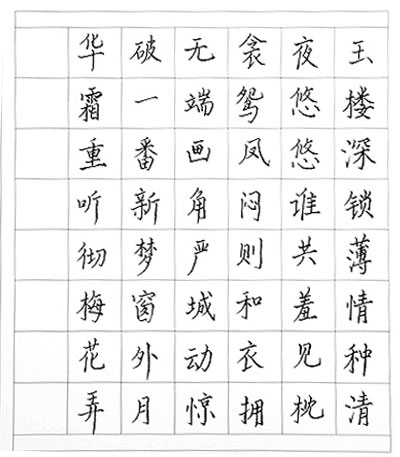 玉楼深锁薄情种清
夜悠悠谁共羞见枕
衾鸳凤闷则和衣拥
无端画角严城动惊
破一番新梦窗外月
华霜重听彻梅花弄